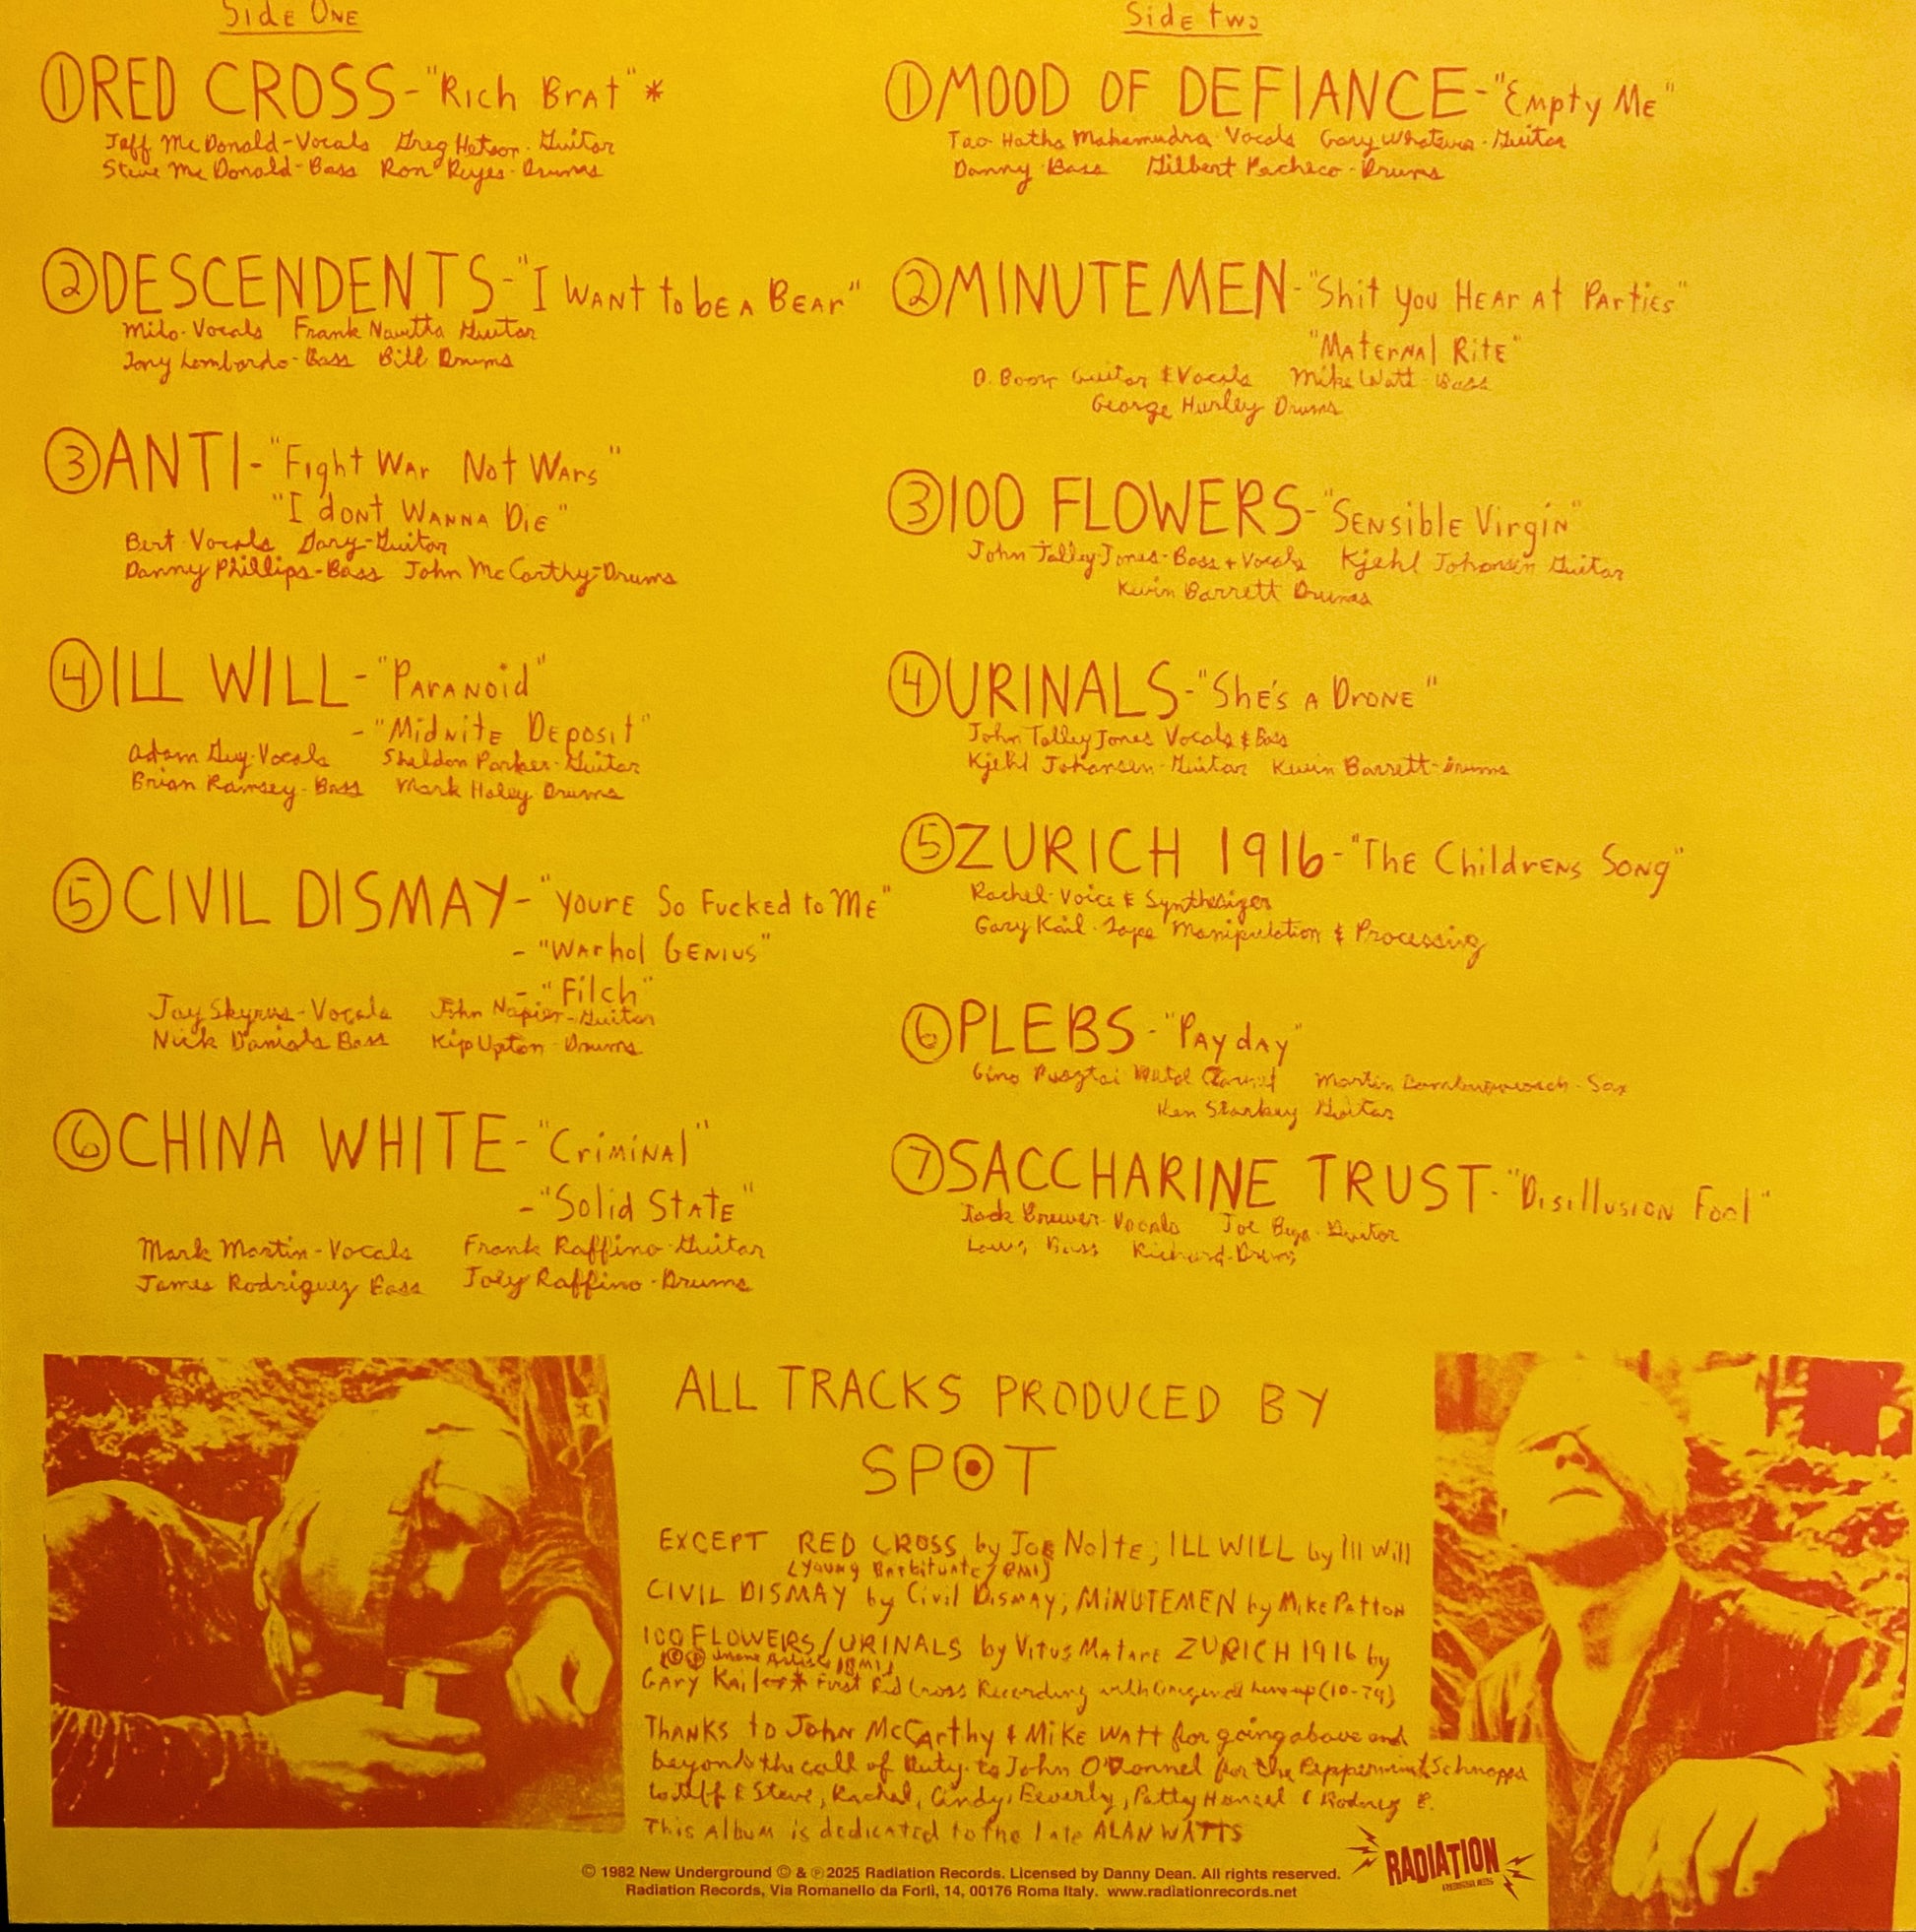 Side One
① RED CROSS - "Rich Brat" *
Jeff McDonald - Vocals Greg Hetson - Guitar
Steve McDonald - Bass Ron Reyes - Drums
② DESCENDENTS - "I Want to be A Bear"
Milo - Vocals Frank Navetta Guitar
Tony Lombardo - Bass Bill Drums
③ ANTI - "Fight War Not Wars"
"I dont Wanna Die"
Bert - Vocals Gary - Guitar
Danny Phillips - Bass John McCarthy - Drums
④ ILL WILL - "Paranoid"
- "Midnite Deposit"
Adam Guy - Vocals Sheldon Parker - Guitar
Brian Ramsey - Bass Mark Haley Drums
⑤ CIVIL DISMAY - "Youre So Fucked to Me"
- "Warhol Genius"
- "Filch"
Jay Skyrus - Vocals John Napier - Guitar
Nick Daniels Bass Kip Upton - Drums
⑥ CHINA WHITE - "Criminal"
- "Solid State"
Mark Martin - Vocals Frank Raffino - Guitar
James Rodriguez Bass Joey Raffino - Drums
Side two
① MOOD OF DEFIANCE - "Empty Me"
Tao Hatha Mahamudra Vocals Gary Whatever - Guitar
Danny - Bass Gilbert Pacheco - Drums
② MINUTEMEN - "Shit You Hear At Parties"
"Maternal Rite"
D. Boon Guitar & Vocals Mike Watt - Bass
George Hurley Drums
③ 100 FLOWERS - "Sensible Virgin"
John Talley-Jones - Bass + Vocals Kjehl Johansen Guitar
Kevin Barrett Drums
④ URINALS - "She's A Drone"
John Talley Jones Vocals & Bass
Kjehl Johansen - Guitar Kevin Barrett - Drums
⑤ ZURICH 1916 - "The Childrens Song"
Rachel - Voice & Synthesizer
Gary Kail - Tape Manipulation & Processing
⑥ PLEBS - "Payday"
Gino Pusztai Martin Sax
Ken Starkey Guitar
⑦ SACCHARINE TRUST - "Disillusion Fool"
Jack Brewer - Vocals Joe Baiza - Guitar
Bass Richard - Drums
ALL TRACKS PRODUCED BY
SPOT
EXCEPT RED CROSS by Joe Nolte; ILL WILL by Ill Will
(Young Barbituate / BMI)
CIVIL DISMAY by Civil Dismay; MINUTEMEN by Mike Patton
100 FLOWERS / URINALS by Vitus Matare ZURICH 1916 by
(© ℗ Inane Artists / BMI)
Gary Kail * First Red Cross Recording with Original Lineup (10-79)
Thanks to John McCarthy & Mike Watt for going above and
beyond the call of Duty - to John O'Donnel for the Peppermint Schnapps
to Jeff & Steve, Rachel, Cindy, Beverly, Patty Hensel & Rodney B.
This Album is dedicated to the late ALAN WATTS
© 1982 New Underground © & ℗ 2025 Radiation Records. Licensed by Danny Dean. All rights reserved.
Radiation Records, Via Romanello da Forlì, 14, 00176 Roma Italy. www.radiationrecords.net
RADIATION
REISSUES